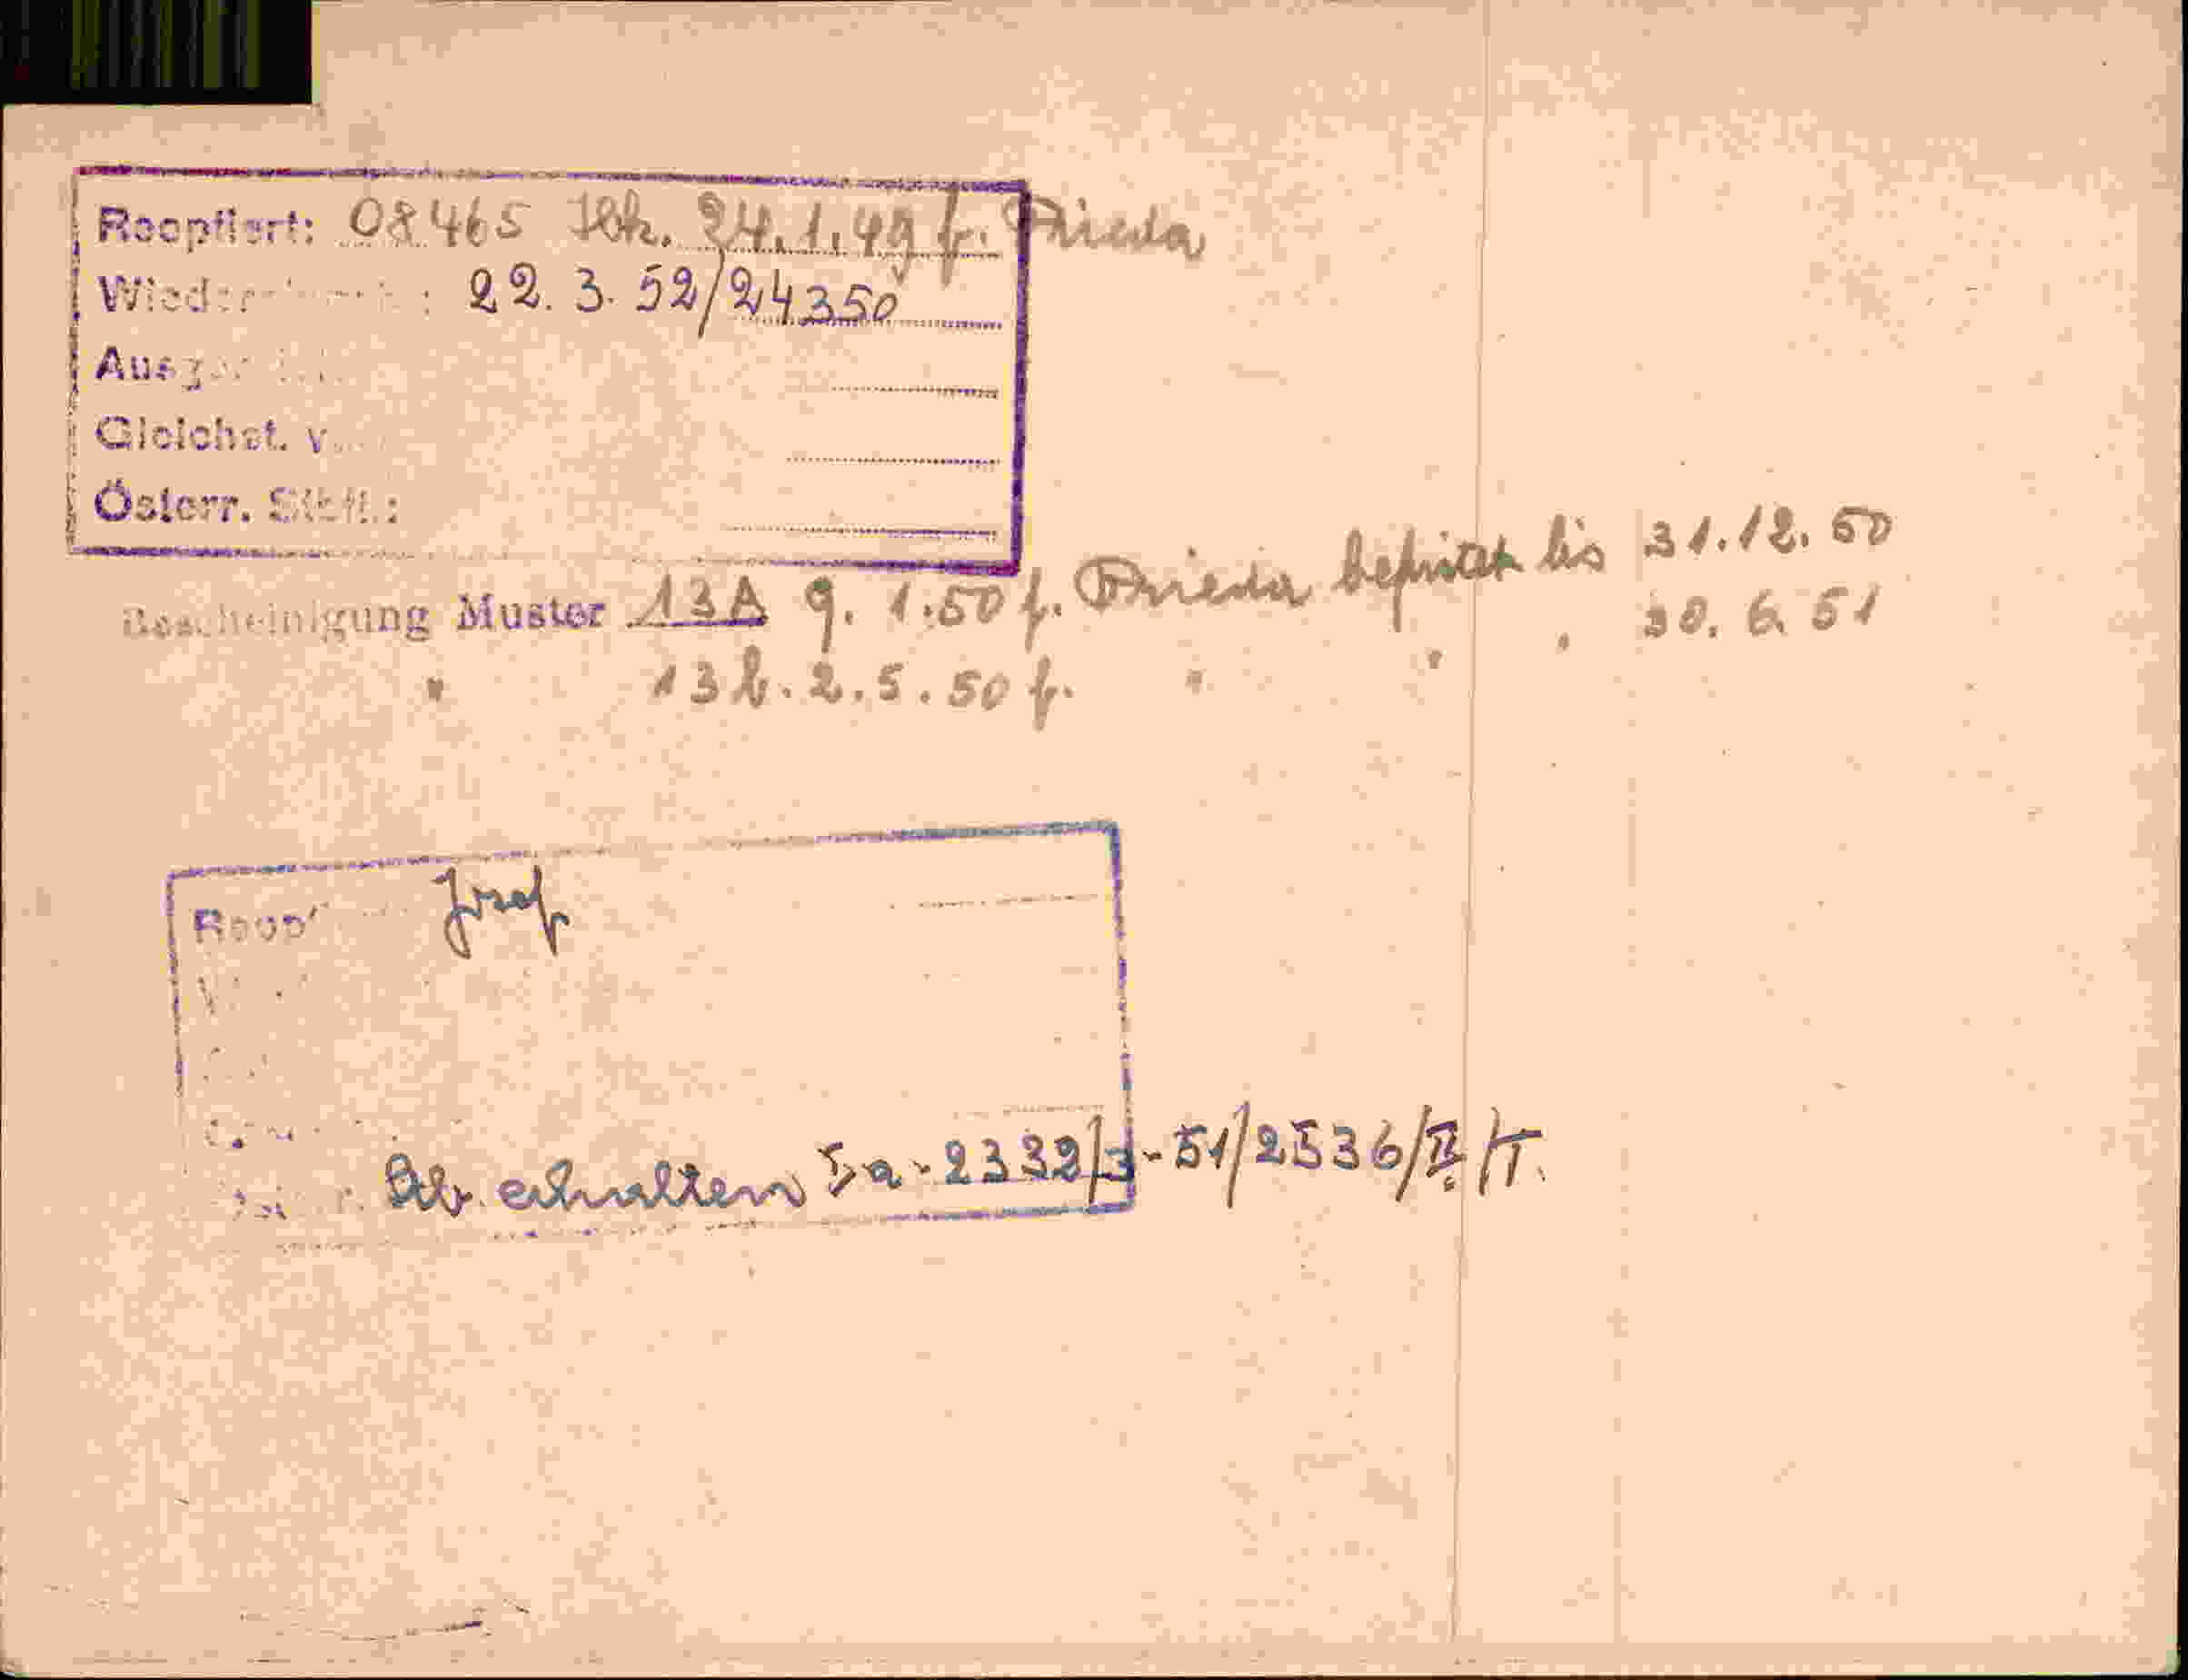 Reoptiert: 08465 Hbk. 24.1.49 f. Frieda
22.3.52/24350
Gleichst. v.
Österr. Stbft.:
Bescheinigung Muster 13A 9. 1.50 f. Frieda befristet bis 31.12.50
" 13b. 2.5.50 f. " " " 30.6.51
Josef
erhalten 5a-2332/3-51/2536/II/T.